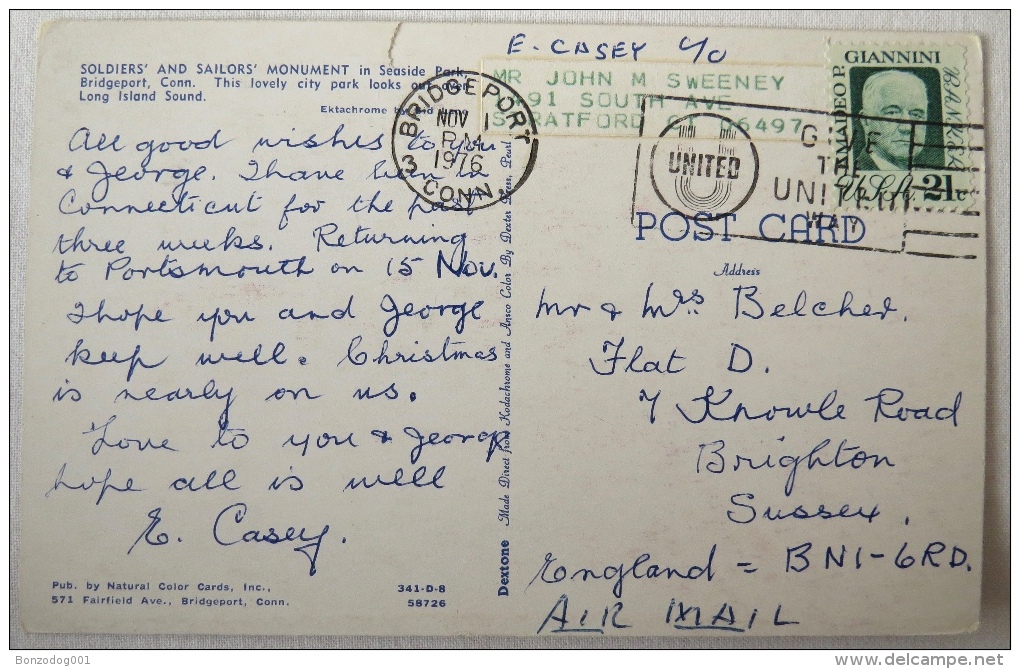 E. CASEY C/O
SOLDIERS' AND SAILORS' MONUMENT in Seaside Park,
Bridgeport, Conn. This lovely city park looks out over
Long Island Sound.
Ektachrome by
MR JOHN M SWEENEY
91 SOUTH AVE
STRATFORD CT 06497
BRIDGEPORT
NOV 1
PM
3 1976
CONN.
UNITED
GIVE
THE
UNITED
WAY
AMADEO P. GIANNINI
BANKER
U.S.A. 21c
All good wishes to you
& George. I have been in
Connecticut for the past
three weeks. Returning
to Portsmouth on 15 Nov.
I hope you and George
keep well. Christmas
is nearly on us.
Love to you & George
hope all is well
E. Casey.
Pub. by Natural Color Cards, Inc.,
571 Fairfield Ave., Bridgeport, Conn.
341-D-8
58726
Dextone Made Direct from Kodachrome and Ansco Color By Dexter Press, Pearl
POST CARD
Address
Mr & Mrs Belcher.
Flat D.
7 Knowle Road
Brighton
Sussex.
England = BN1-6RD.
AIR MAIL
Bonzodog001
www.delcampe.net